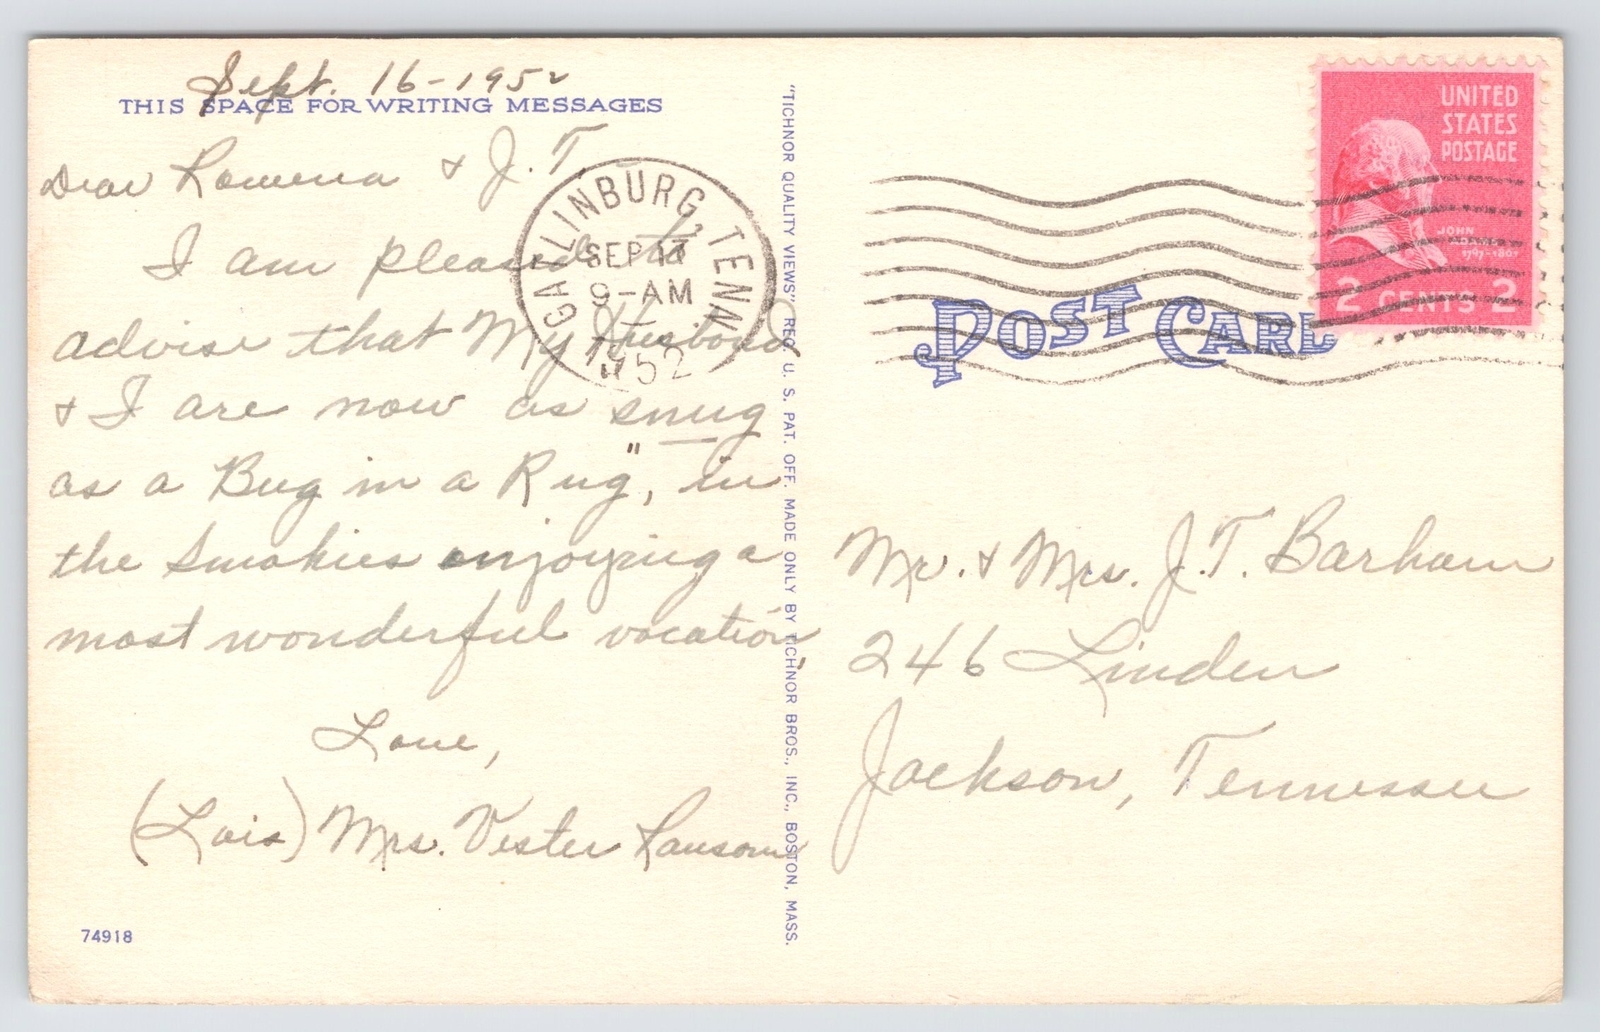 Sept. 16-1952
THIS SPACE FOR WRITING MESSAGES
Dear Rowena & J.T.
I am pleased to
advise that My Husband
& I are now as snug
as a Bug in a Rug", in
the Smokies enjoying a
most wonderful vacation.
Love,
(Lois) Mrs. Vester Ransom
74918
GATLINBURG, TENN.
SEP 17
9-AM
1952
"TICHNOR QUALITY VIEWS" REG. U. S. PAT. OFF. MADE ONLY BY TICHNOR BROS., INC., BOSTON, MASS.
UNITED
STATES
POSTAGE
JOHN
ADAMS
1797-1801
2 CENTS 2
POST CARD
Mr. & Mrs. J.T. Barham
246 Linden
Jackson, Tennessee